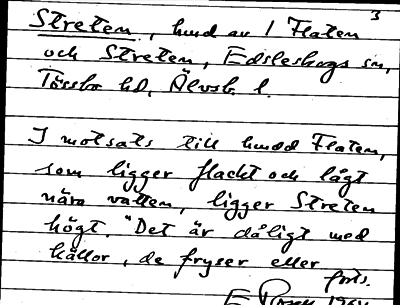 3
Streten, hmd av 1 Flaten
och Streten, Edsleskogs sn,
Tössbo hd, Älvsb. l.
I motsats till hmdd Flaten,
som ligger flackt och lågt
nära vatten, ligger Streten
högt. "Det är dåligt med
källor, de fryser eller
forts.
E Rosell 1964